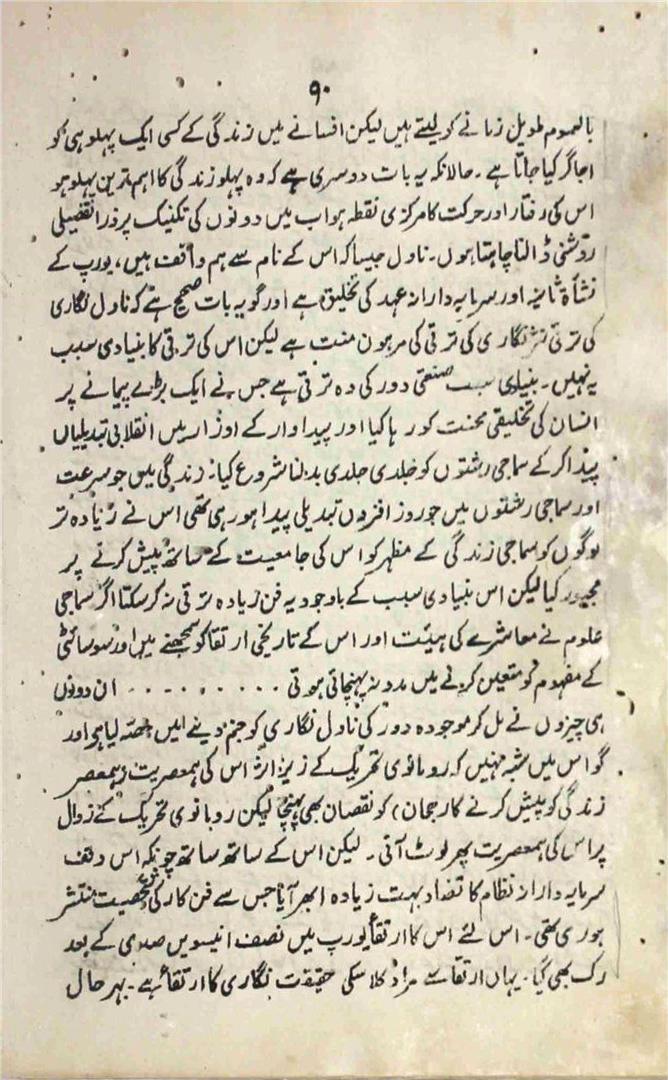 ۹۰
بالعموم طویل زمانے کو لیتے ہیں لیکن افسانے میں زندگی کے کسی ایک پہلو ہی کو
اجاگر کیا جاتا ہے۔ حالانکہ یہ بات دوسری ہے کہ وہ پہلو زندگی کا اہم ترین پہلو ہو
اس کی رفتار اور حرکت کا مرکزی نقطہ ہو اب میں دونوں کی تکنیک پر ذرا تفصیلی
روشنی ڈالنا چاہتا ہوں۔ ناول جیسا کہ اس کے نام سے ہم واقف ہیں، یورپ کے
نشأۃ ثانیہ اور سرمایہ دارانہ عہد کی تخلیق ہے اور گو یہ بات صحیح ہے کہ ناول نگاری
کی ترقی نثر نگاری کی ترقی کی مرہون منت ہے لیکن اس کی ترقی کا بنیادی سبب
یہ نہیں۔ بنیادی سبب صنعتی دور کی وہ ترقی ہے جس نے ایک بڑے پیمانے پر
انسان کی تخلیقی محنت کو رہا کیا اور پیداوار کے اوزار میں انقلابی تبدیلیاں
پیدا کر کے سماجی رشتوں کو جلدی جلدی بدلنا شروع کیا۔ زندگی میں جو سرعت
اور سماجی رشتوں میں جو روز افزوں تبدیلی پیدا ہو رہی تھی اس نے زیادہ تر
لوگوں کو سماجی زندگی کے مظہر کو اس کی جامعیت کے ساتھ پیش کرنے پر
مجبور کیا لیکن اس بنیادی سبب کے باوجود یہ فن زیادہ ترقی نہ کر سکتا اگر سماجی
علوم نے معاشرے کی ہیئت اور اس کے تاریخی ارتقا کو سمجھنے میں اور سوسائٹی
کے مفہوم کو متعین کرنے میں مدد نہ پہنچائی ہوتی ۔۔۔۔۔۔۔۔۔ ان دونوں
ہی چیزوں نے مل کر موجودہ دور کی ناول نگاری کو جنم دینے میں حصہ لیا ہے اور
گو اس میں شبہ نہیں کہ رومانوی تحریک کے زیر اثر اس کی ہمعصریت (ہمعصر
زندگی کو پیش کرنے کا رجحان) کو نقصان بھی پہنچا لیکن رومانوی تحریک کے زوال
پر اس کی ہمعصریت پھر لوٹ آئی۔ لیکن اس کے ساتھ ساتھ چونکہ اس وقت
سرمایہ دارانہ نظام کا تضاد بہت زیادہ ابھر آیا جس سے فن کار کی شخصیت منتشر
ہو رہی تھی۔ اس لئے اس کا ارتقأ یورپ میں نصف انیسویں صدی کے بعد
رک بھی گیا۔ یہاں ارتقأ سے مراد کلاسکی حقیقت نگاری کا ارتقأ ہے۔ بہر حال